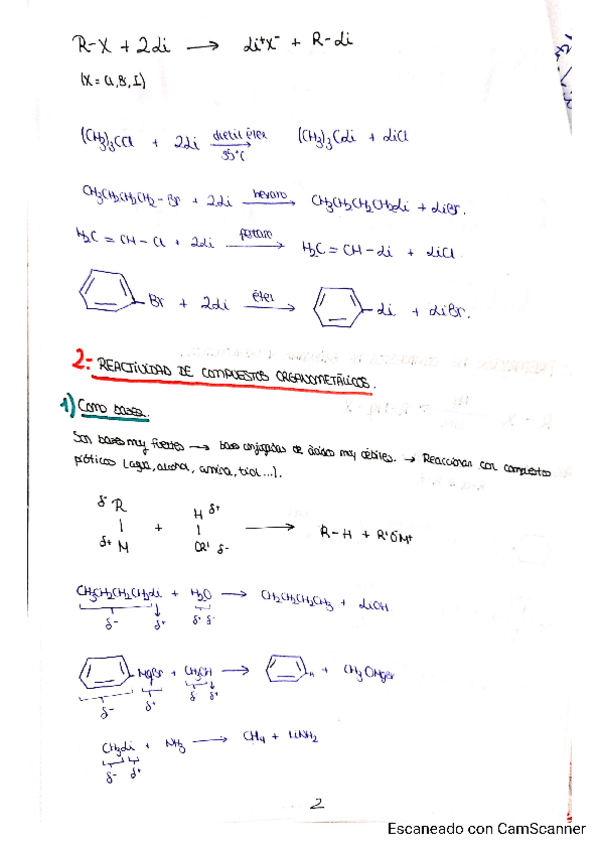 R-X + 2Li → Li⁺X⁻ + R-Li
(X = Cl, Br, I)
(CH₃)₃CCl + 2Li dietil éter 35°C → (CH₃)₃CLi + LiCl
CH₃CH₂CH₂CH₂-Br + 2Li hexano → CH₃CH₂CH₂CH₂Li + LiBr.
H₂C = CH - Cl + 2Li pentano → H₂C = CH - Li + LiCl
Br + 2Li éter → Li + LiBr.
2.- REACTIVIDAD DE COMPUESTOS ORGANOMETÁLICOS.
1) Como bases.
Son bases muy fuertes → bases conjugadas de ácidos muy débiles. → Reaccionan con compuestos
próticos (agua, alcohol, amina, tiol...).
δ⁻ R H δ⁺
+ → R-H + R'O⁻M⁺
δ⁺ M OR' δ⁻
CH₃CH₂CH₂CH₂Li + H₂O → CH₃CH₂CH₂CH₃ + LiOH
δ⁻ δ⁺ δ⁺ δ⁻
MgBr + CH₃OH → H + CH₃OMgBr
δ⁻ δ⁺ δ⁻ δ⁺
CH₃Li + NH₃ → CH₄ + LiNH₂
δ⁻ δ⁺
2
Escaneado con CamScanner